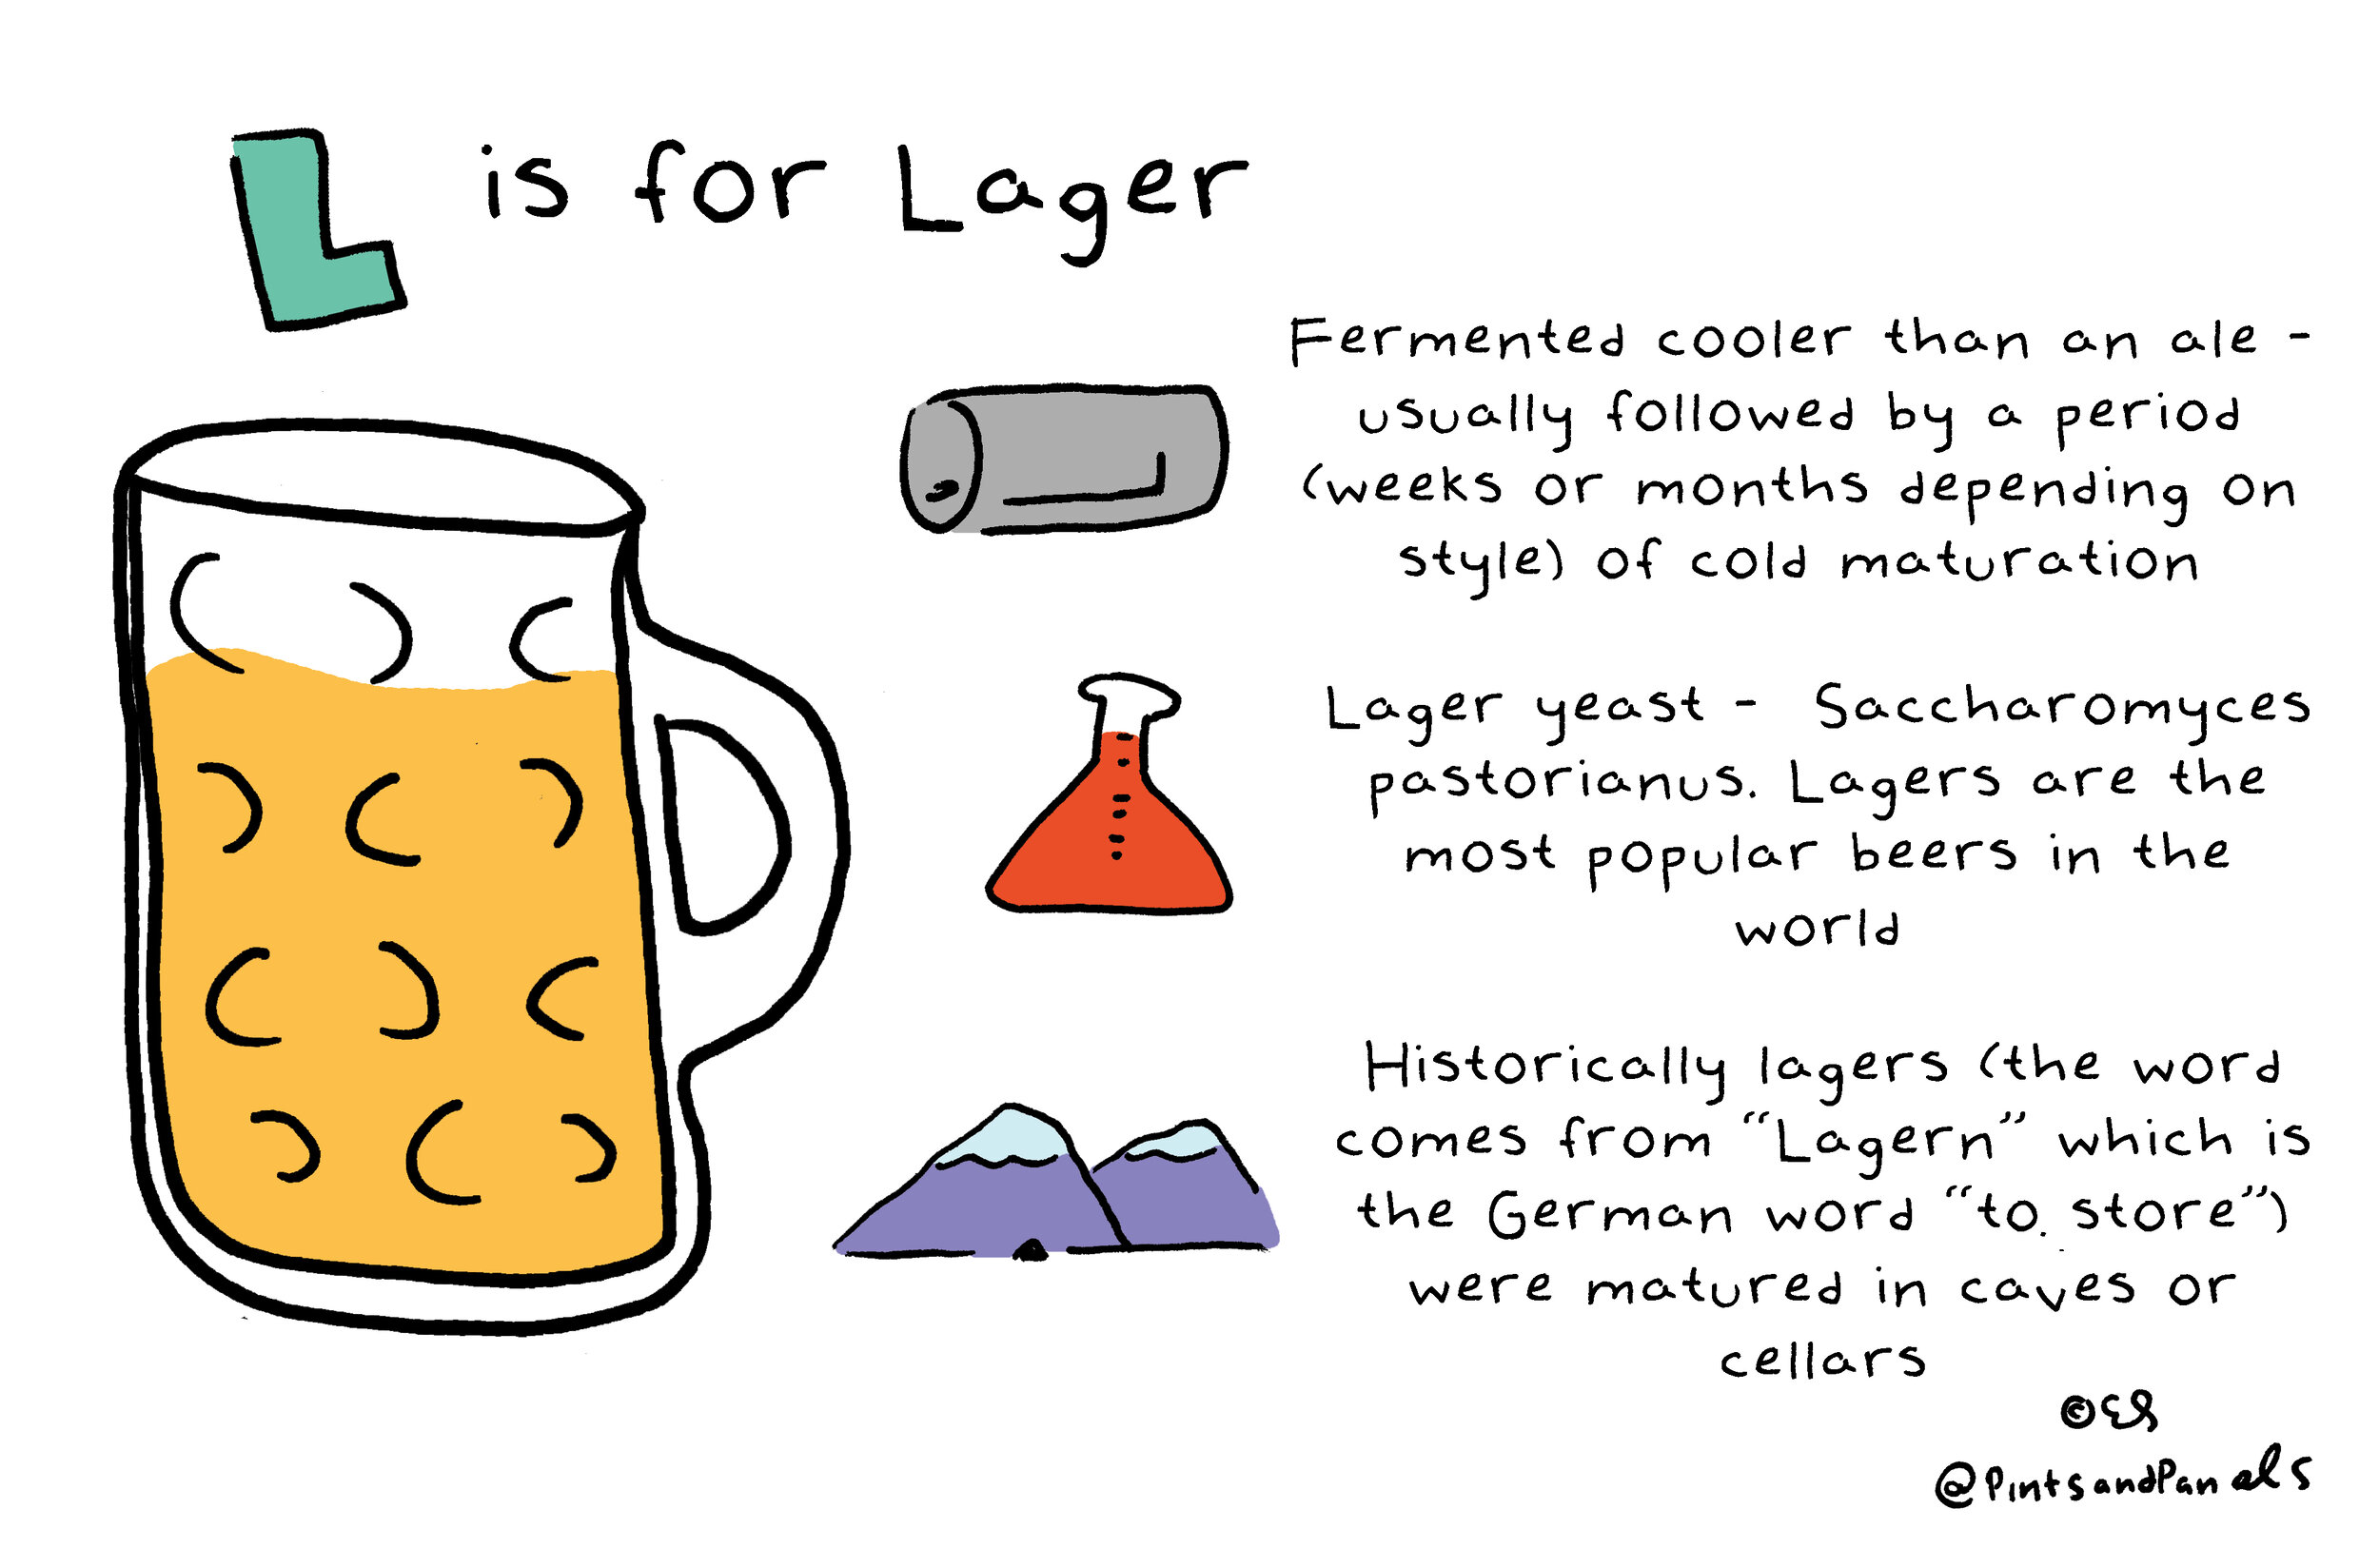 L is for Lager
Fermented cooler than an ale -
usually followed by a period
(weeks or months depending on
style) of cold maturation
Lager yeast - Saccharomyces
pastorianus. Lagers are the
most popular beers in the
world
Historically lagers (the word
comes from "Lagern" which is
the German word "to store")
were matured in caves or
cellars
©ES
@PintsandPanels